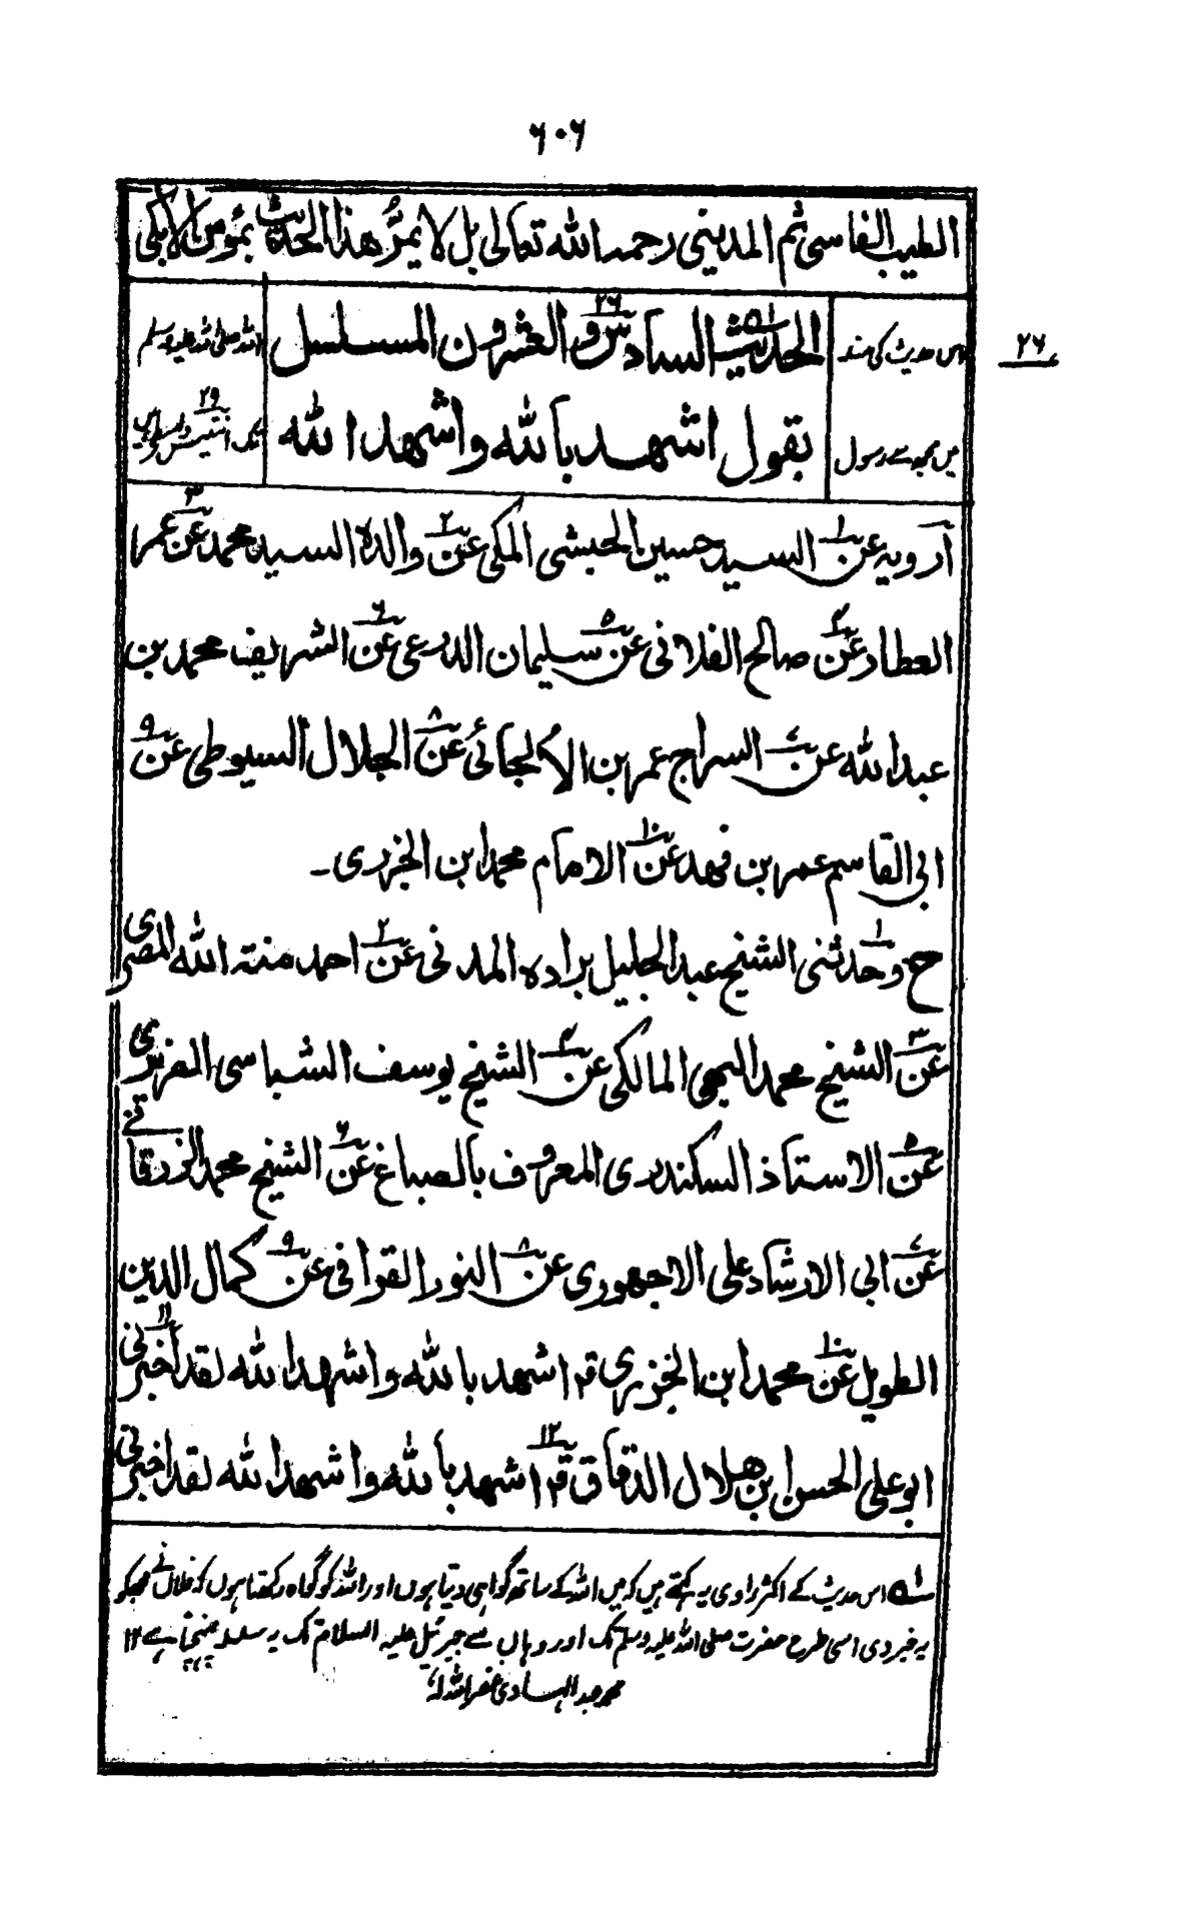 ۶۰۶
الطیب الفاسی ثم المدینی رحمہ اللہ تعالی بل لا یمرّ ھذا الحدیث بمؤمن الا بکی
۲۶
اس حدیث کی سند
میں مجھ سے رسول
الحدیث السادس والعشرون المسلسل
بقول اشھد باللہ واشھد اللہ
اللہ صلی اللہ علیہ وسلم
تک انتیس ۲۹ واسطے ہیں
اَرویہ عن۱ السید حسین الحبشی المکی عن۲ والدہ السید محمد عن۳ عمر
العطار عن۴ صالح الفلانی عن۵ سلیمان الدرعی عن۶ الشریف محمد بن
عبد اللہ عن۷ السراج عمر بن الالجائی عن۸ الجلال السیوطی عن۹
ابی القاسم عمر بن فھد عن۱۰ الامام محمد ابن الجزری ۔
ح وحدثنی۱ الشیخ عبد الجلیل برادہ المدنی عن۲ احمد منۃ اللہ المصری
عن۳ الشیخ محمد البھی المالکی عن۴ الشیخ یوسف الشباسی الضریر
عن۵ الاستاذ السکندری المعروف بالصباغ عن۶ الشیخ محمد الزرقانی
عن۷ ابی الارشاد علی الاجھوری عن۸ النور القرافی عن۹ کمال الدین
الطویل عن۱۰ محمد ابن الجزری قال اشھد باللہ واشھد اللہ لقد اخبرنی۱۱
ابو علی الحسن ابن ھلال الدقاق قال۱۲ اشھد باللہ واشھد اللہ لقد اخبرنی
۵۱ اس حدیث کے اکثر راوی یہ کہتے ہیں کہ میں اللہ کے ساتھ گواہی دیتا ہوں اور اللہ کو گواہ رکھتا ہوں کہ فلاں نے مجھکو
یہ خبر دی اسی طرح حضرت صلی اللہ علیہ وسلم تک اور وہاں سے جبرئیل علیہ السلام تک یہ سلسلہ پہنچتا ہے ۱۲
محمد عبد الہادی غفر اللہ لہ